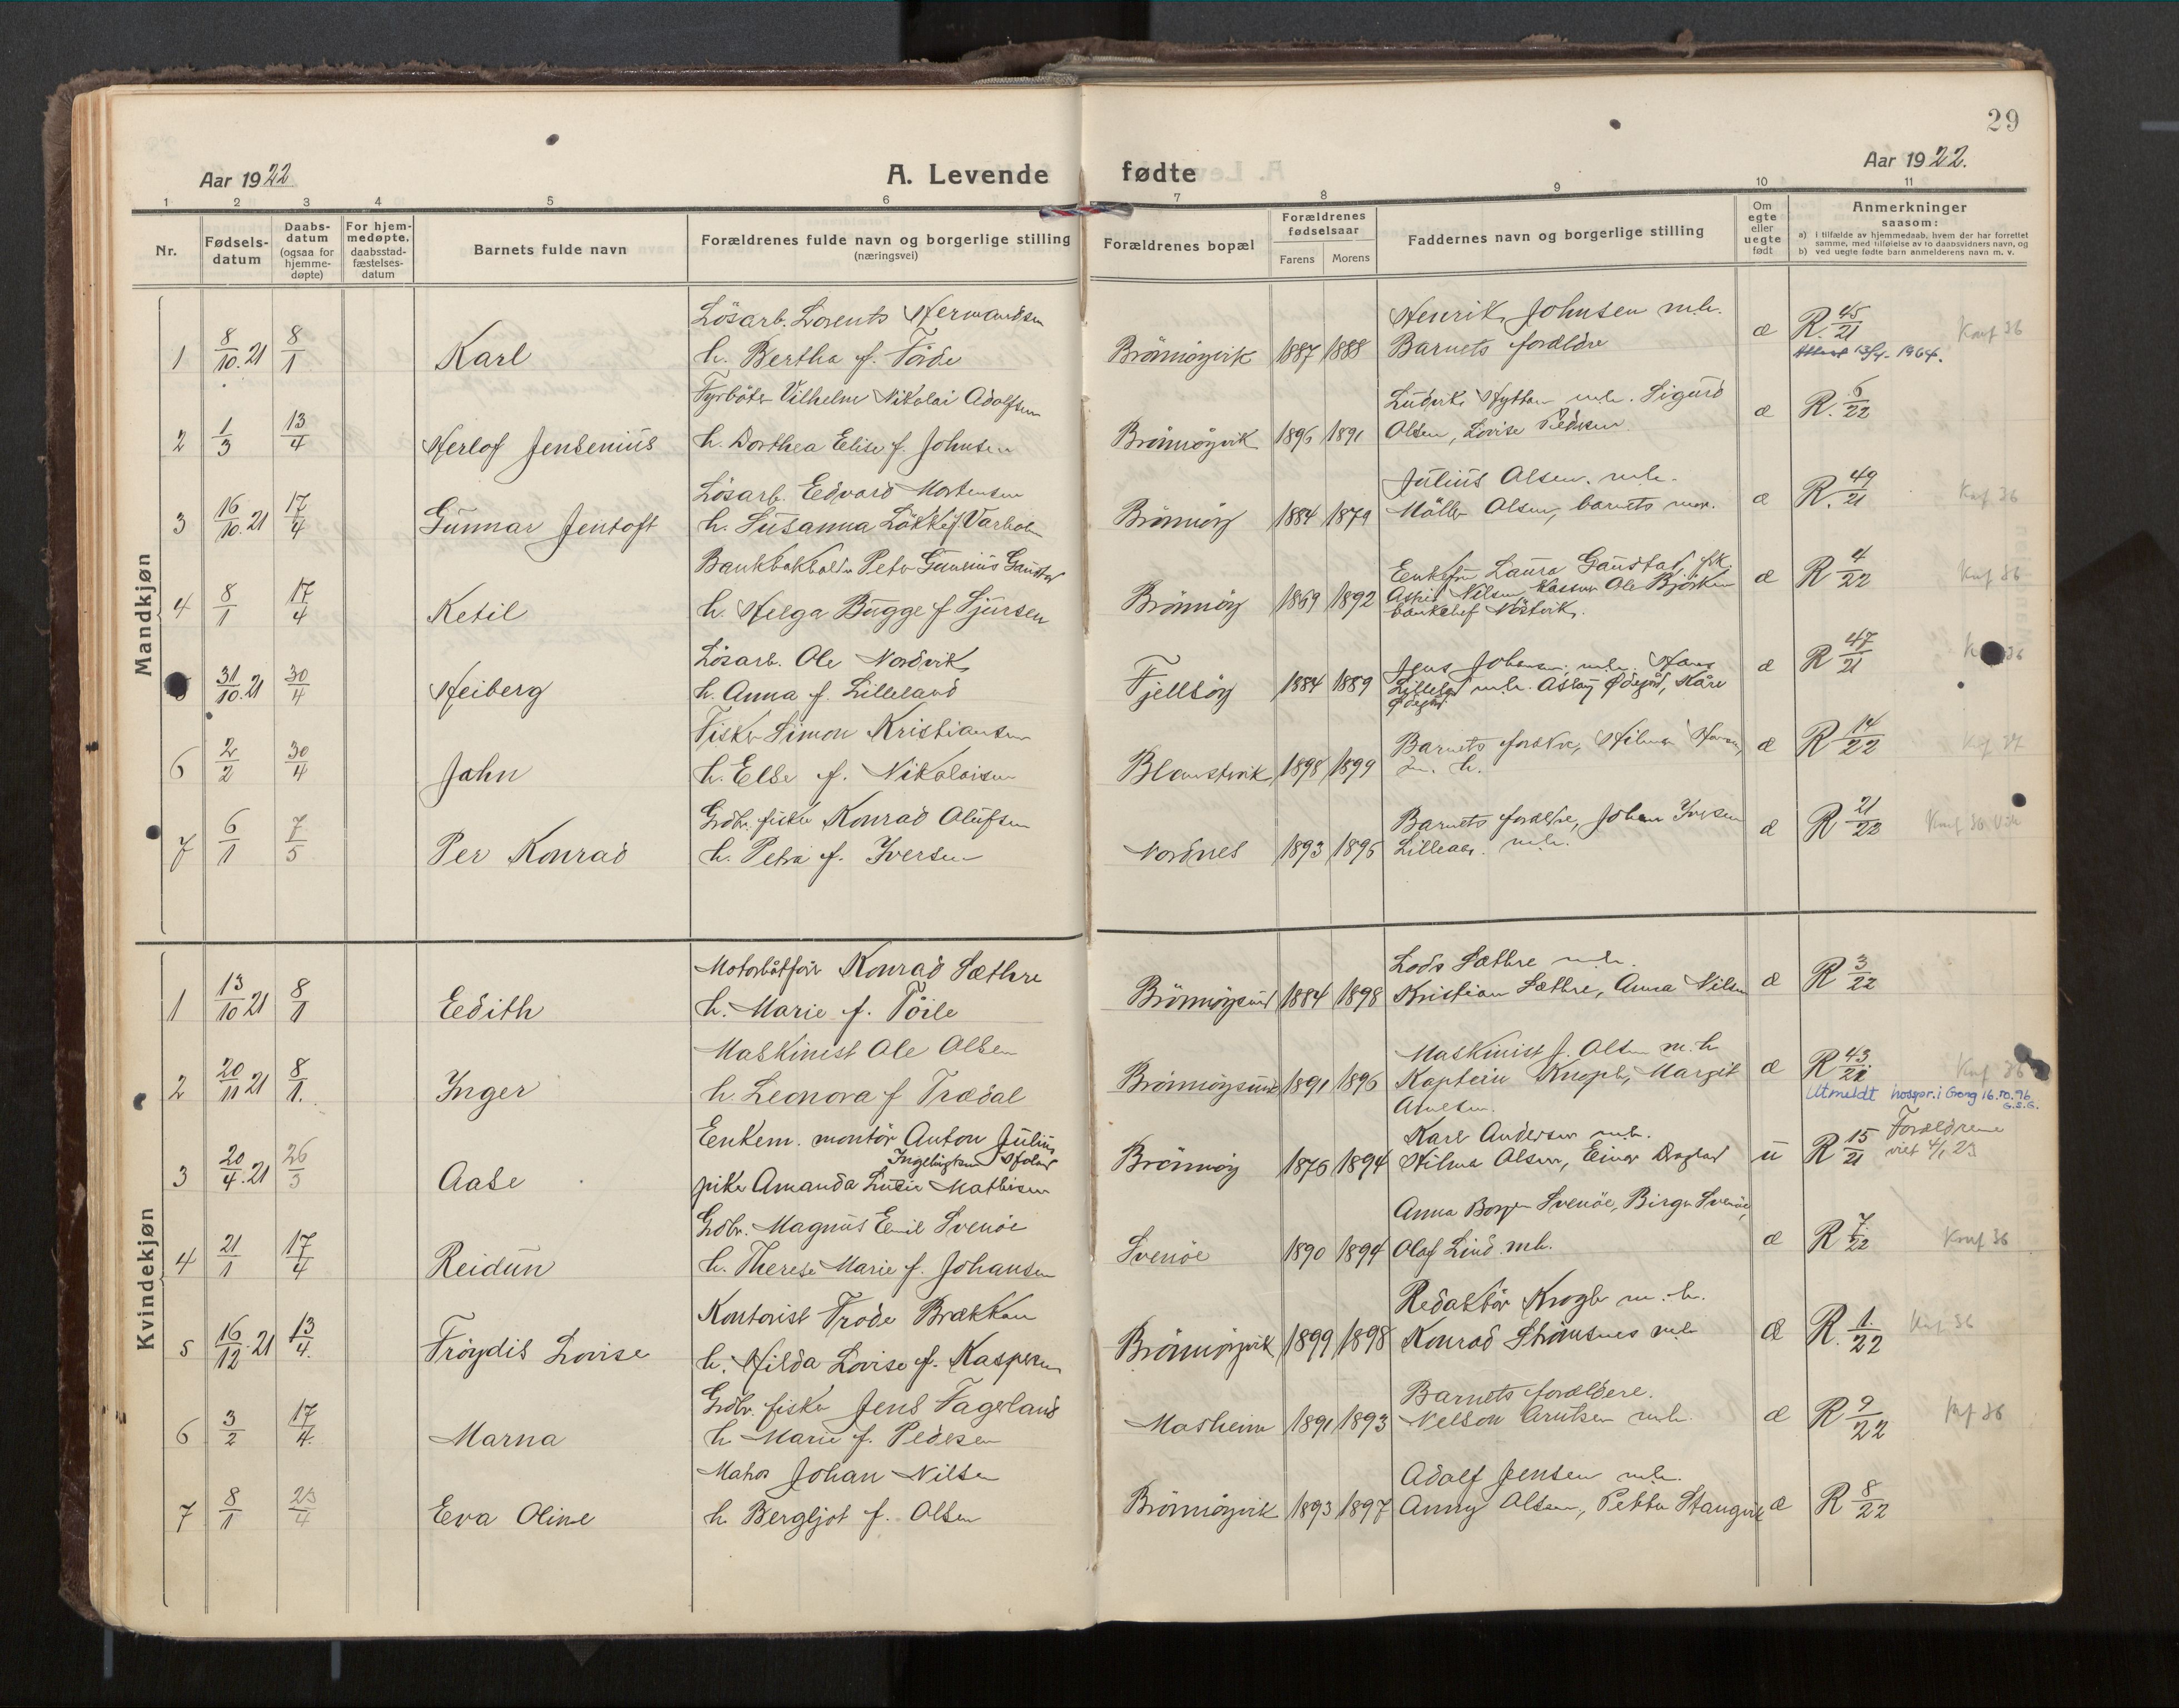 29
Aar 1922
A. Levende fødte
Aar 1922.
1 2 3 4 5 6 7 8 9 10 11
Nr.
Fødsels-
datum
Daabs-
datum
(ogsaa for
hjemme-
døpte)
For hjem-
medøpte,
daabsstad-
fæstelses-
datum
Barnets fulde navn
Forældrenes fulde navn og borgerlige stilling
(næringsvei)
Forældrenes bopæl
Forældrenes
fødselsaar
Farens Morens
Faddernes navn og borgerlige stilling
Om
egte
eller
uegte
født
Anmerkninger
saasom:
a) i tilfælde av hjemmedaab, hvem der har forrettet
samme, med tilføielse av to daabsvidners navn, og
b) ved uegte fødte barn anmelderens navn m. v.
Mandkjøn
Lösarb. Lorents Hermandsen Henrik Johnsen m.h.
1 8/10.21 8/1 Karl h. Bertha f. Töide Brönnöyvik 1887 1888 Barnets foreldre æ R 45/21 Konf 36
13/4. 1964.
Fyrböter Vilhelm Nikolai Adolfsen m.h. Sigurd
2 1/3 13/4 Herlof Jensenius h. Dorthea Elise f. Johnsen Brönnöyvik 1896 1891 Olsen, Lovise Pedersen æ R. 6/22
Lösarb. Edvard Mortensen Julius Olsen. m.h.
3 16/10.21 17/4 Gunnar Jentoft h. Susanna Lökke f Varholm Brönnöy 1884 1879 Möller Olsen, barnets mor. æ R. 49/21 Konf 36
Bankbokholder Peter Gunerius Gaustad Enkefru Laura Gaustad, frk.
4 8/1 17/4 Ketil h. Helga Bugge f Sjursen Brönnöy 1869 1892 Nilsen, Kasserer Ole æ R 4/22 Konf 36
banksjef
Lösarb. Ole Nordvik Jens Johansen m.h. Hans
31/10.21 30/4 Heiberg h. Anna f. Lilleland Fjellsöy 1884 1889 m.h. Aslaug Ödegård, Kåre æ R 47/21
Ödegård
Fisker Simon Kristiansen Barnets foreldre, Hilmar
6 2/2 30/4 John h. Else f. Nikolaisen 1898 1899 m. h. æ R 14/22
Grdbr. fisker Konrad Olufsen Barnets foreldre, Johan Iversen
7 6/1 7/5 Per Konrad h. Petra f. Iversen Nordnes 1893 1895 m.h. æ R 21/22 Konf 36
Kvindekjøn
Motorbåtförer Konrad Sæthre Lods Sæthre m.h.
1 13/10 21 8/1 Eedith h. Marie f. Töile Brönnöysund 1884 1898 Kristian Sæthre, Anna Nilsen æ R 3/22
Maskinist Ole Olsen Maskinist J. Olsen m.h
2 20/11 21 8/1. Ynger h. Leonora f Trædal Brönnöysund 1891 1896 Kaptein Knoph, Margit æ R 43/21 Konf 36
Utmeldt hosspr. i Grong 16.10.76
G.S.G.
Enkem. montör Anton Julius Karl Andersen m.h.
Ingebrigtsen
3 20/4.21 26/3 Aase pike Amanda Lusie Mathisen Brönnöy 1876 1894 Hilma Olsen, Einar u R 15/21 Foreldrene
viet 4/1 23
Grdbr. Magnus Emil Svenöe Anna Svenöe, Birger Svenöe,
4 21/1 17/4 Reidun h. Therese Marie f. Johansen Svenöe 1890 1894 Olaf Lind m.h. æ R 7/22 Konf 36
Kontorist Frode Brækkan Redaktör Krogh m.h.
5 16/12.21 13/4. Fröydis Lovise h. Hilda Lovise f. Kaspersen Brönnöyvik 1899 1898 Konrad m.h æ R. 1./22 Konf 36
Grdbr. fisker Jens Fagerland Barnets foreldere.
6 3/2 17/4. Marna h. Marie f. Pedersen Mosheim 1891 1893 Nelson Arntsen m.h. æ R 9/22 Konf 36
Matros Johan Nilsen Adolf Jensen m.h.
7 8/1 23/4 Eva Oline h. Bergljot f. Olsen Brönnöyvik 1893 1897 Anny Olsen, Petter Stangvik æ R 8/22